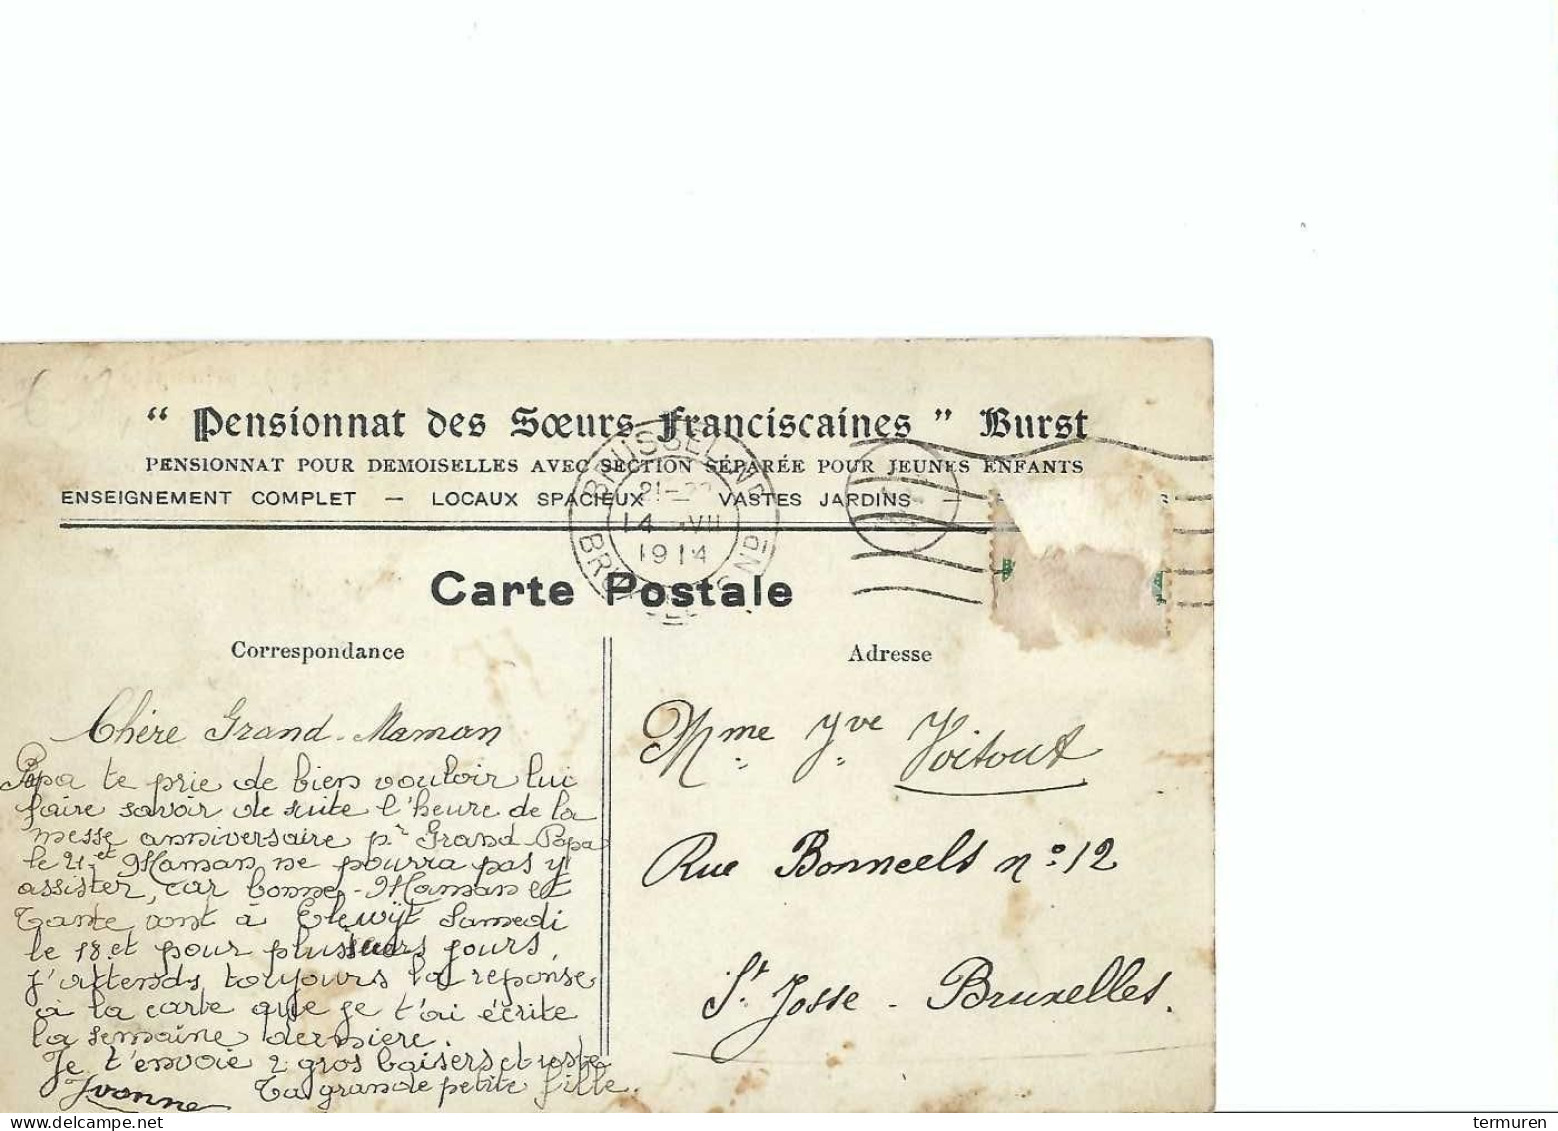 " Pensionnat des Sœurs Franciscaines " Burst
PENSIONNAT POUR DEMOISELLES AVEC SECTION SÉPARÉE POUR JEUNES ENFANTS
ENSEIGNEMENT COMPLET — LOCAUX SPACIEUX — VASTES JARDINS —
BRUSSEL
21-22
14 VII
1914
Carte Postale
Correspondance
Chère Grand-Maman
Papa te prie de bien vouloir lui
faire savoir de suite l'heure de la
messe anniversaire pr Grand-Papa
le 21 et Maman ne pourra pas y
assister, car bonne-Maman et
Tante vont à Elewijt Samedi
le 18 et pour plusieurs jours,
j'attends toujours la reponse
à la carte que je t'ai écrite
la semaine dernière.
Je t'envoie 2 gros baisers et reste
Ta grande petite fille.
Yvonne
Adresse
Mme Vve Voitout
Rue Bonneels no 12
St Josse - Bruxelles.
termuren